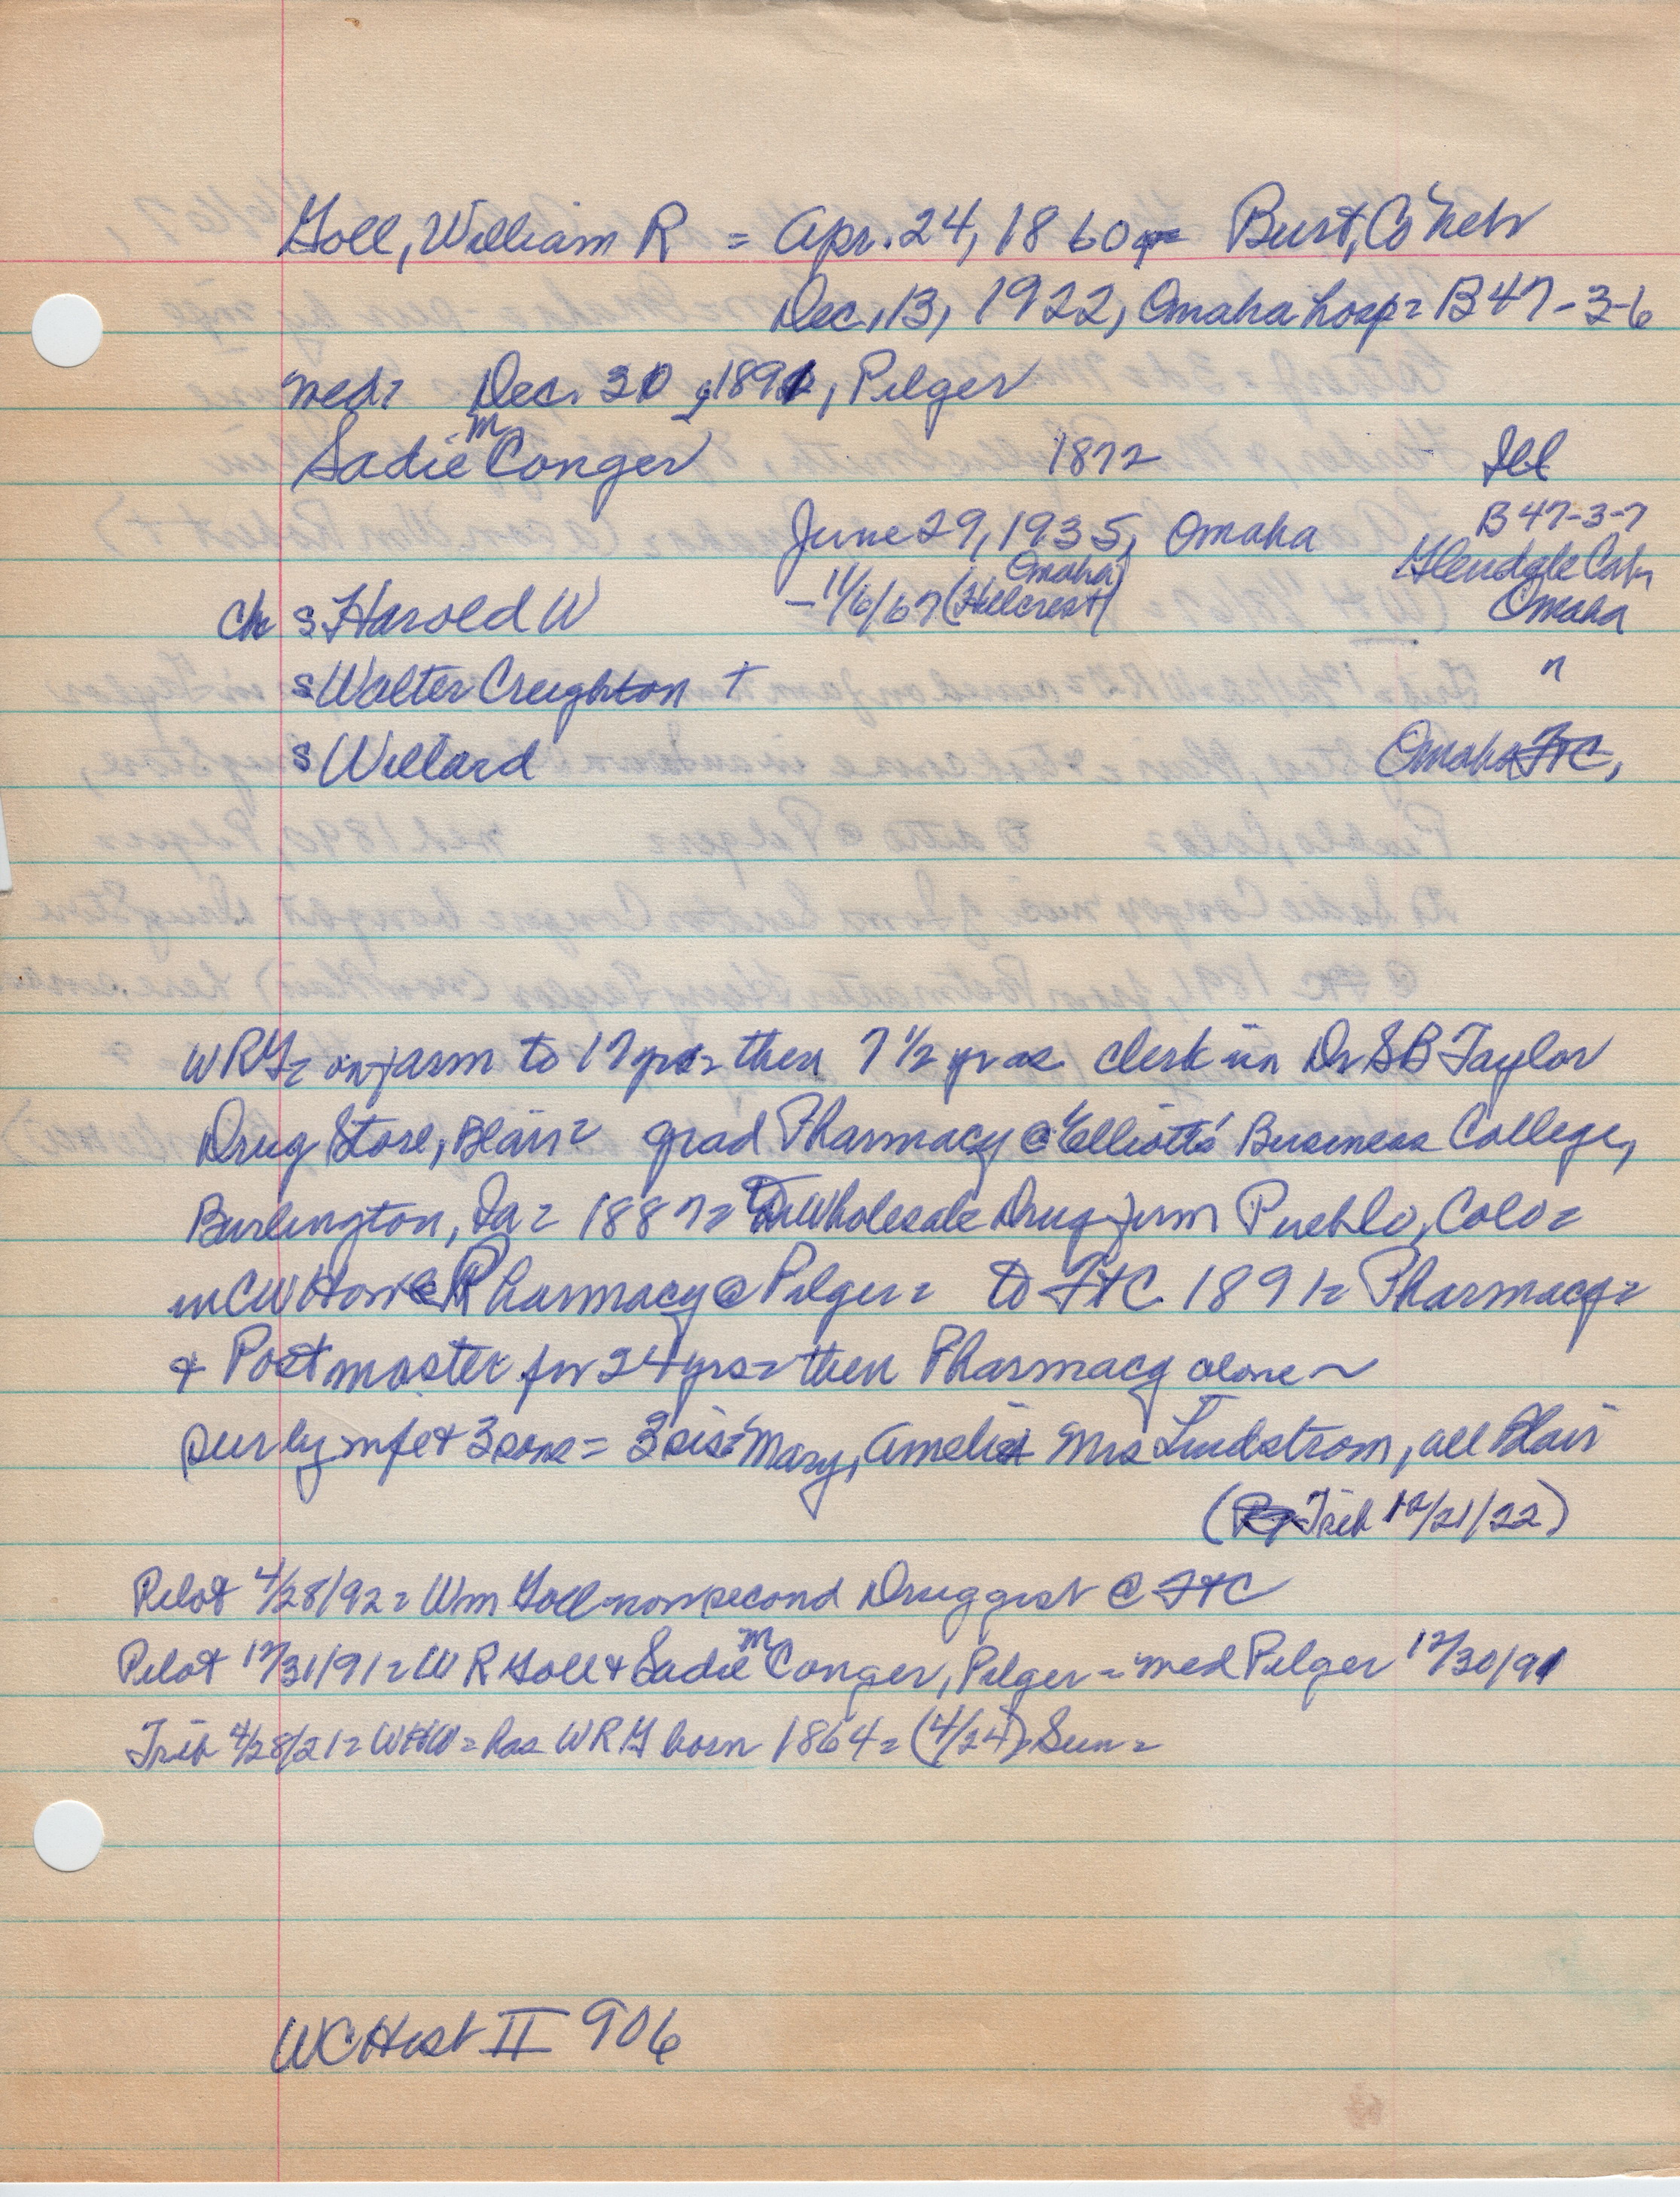 Goll, William R = Apr. 24, 1860 = Burt, Co Neb
Dec, 13, 1922, Omaha hosp = B47-3-6
med = Dec. 30, 1891, Pilger
Sadie M Conger 1872 Ill
June 29, 1935, Omaha B47-3-7
ch s Harold W - 11/6/67 (Hillcrest) Omaha Glendale Cal, Omaha
s Walter Creighton + "
s Willard Omaha FTC,
WRG = on farm to 17 yrs = then 7 1/2 yr as clerk in Dr SB Taylor
Drug Store, Blair = grad Pharmacy @ Elliotts' Business College,
Burlington, Ia = 1887 = To Wholesale Drug firm Pueblo, Colo =
in CW Pharmacy @ Pilger = To FTC 1891 = Pharmacy =
& Postmaster for 24 yrs = then Pharmacy alone ~
sur by wife & 3 sons = 3 sis = Mary, Amelia Mrs Lindstrom, all Blair
(Trib 12/21/22)
Pilot 4/28/92 = Wm Goll now second Druggist @ FTC
Pilot 12/31/91 = W R Goll & Sadie M Conger, Pilger = med Pilger 12/30/91
Trib 4/28/21 = = has WRG born 1864 = (4/24) Sun =
WC Hist II 906